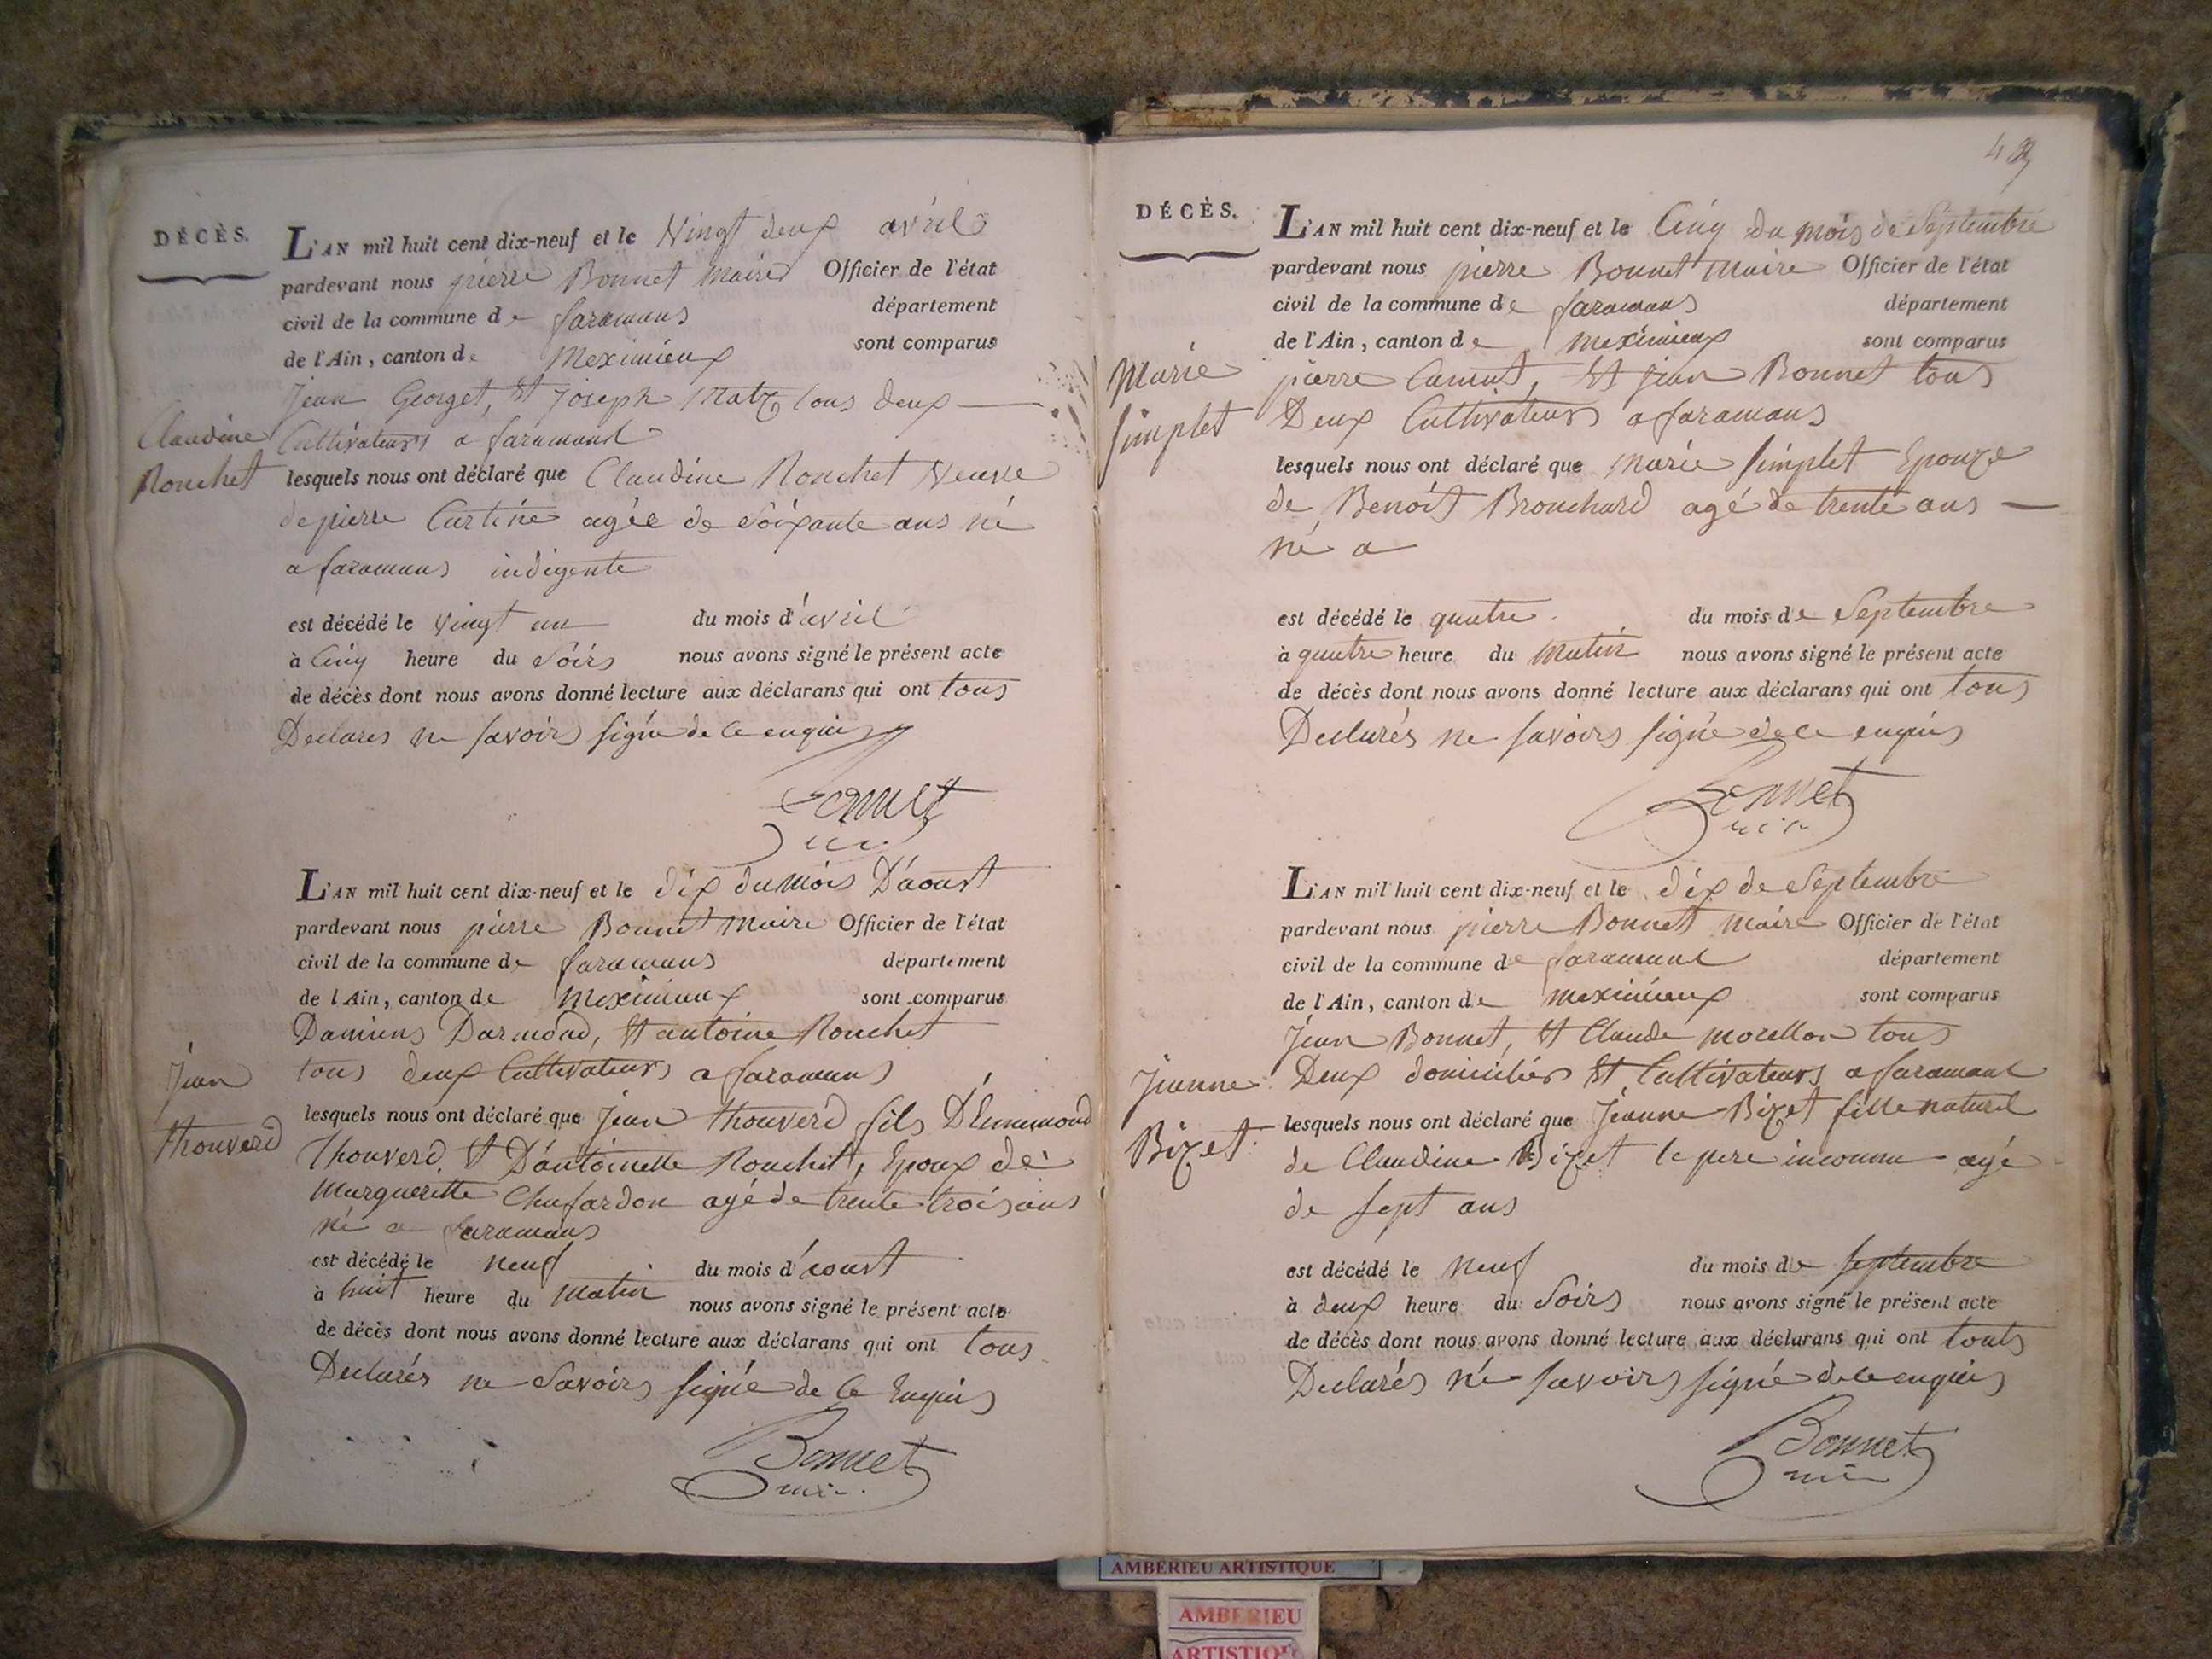 DÉCÈS.
L'AN mil huit cent dix-neuf et le Vingt deux avril
pardevant nous pierre Bonnet maire Officier de l'état
civil de la commune de faramans département
de l'Ain, canton de Meximieux sont comparus
Jean Georget, Et Joseph Matz tous deux
Cultivateurs a faramand
Claudine
Rouchet
lesquels nous ont déclaré que Claudine Rouchet Veuve
de pierre agée de Soixante ans né
a faramans indigente
est décédé le Vingt un du mois d'avril
à Cinq heure du Soirs nous avons signé le présent acte
de décès dont nous avons donné lecture aux déclarans qui ont tous
Declarés ne savoirs signé de ce enquis
Bonnet
L'AN mil huit cent dix-neuf et le dix du mois D'aoust
pardevant nous pierre Bonnet maire Officier de l'état
civil de la commune de faramans département
de l'Ain, canton de Meximieux sont comparus
Damiens Darmond, Et antoine Rouchet
tous deux Cultivateurs a faramans
Jean
Thouverd
lesquels nous ont déclaré que Jean Thouverd fils D'Ennemond
Thouverd Et D'antoinette Rouchet, Epoux de
Marguerette Chafardon agé de trente trois ans
né a faramans
est décédé le neuf du mois d'aoust
à huit heure du Matin nous avons signé le présent acte
de décès dont nous avons donné lecture aux déclarans qui ont tous
Declarés ne Savoirs signé de Ce Enquis
Bonnet
DÉCÈS.
L'AN mil huit cent dix-neuf et le Cinq du mois de Septembre
pardevant nous pierre Bonnet Maire Officier de l'état
civil de la commune de faramans département
de l'Ain, canton de meximieux sont comparus
Marie
simplet
pierre Camut, Et jean Bonnet tous
Deux Cultivateurs a faramans
lesquels nous ont déclaré que Marie simplet Epouze
de Benoît Brouchard agé de trente ans
né a
est décédé le quatre du mois de Septembre
à quatre heure du Matin nous avons signé le présent acte
de décès dont nous avons donné lecture aux déclarans qui ont tous
Declarés ne savoirs signé de ce enquis
Bonnet
L'AN mil huit cent dix-neuf et le dix de Septembre
pardevant nous pierre Bonnet Maire Officier de l'état
civil de la commune de faramans département
de l'Ain, canton de meximieux sont comparus
Jean Bonnet, Et Claude morellon tous
Deux domiciliés Et Cultivateurs a faramans
Jeanne
Bizet
lesquels nous ont déclaré que Jeanne Bizet fille naturel
de Claudine Bizet le pere inconnu agé
de sept ans
est décédé le neuf du mois de septembre
à deux heure du Soirs nous avons signé le présent acte
de décès dont nous avons donné lecture aux déclarans qui ont touts
Declarés né savoirs signé de ce enquis
Bonnet
AMBERIEU ARTISTIQUE
AMBERIEU
ARTISTIQUE